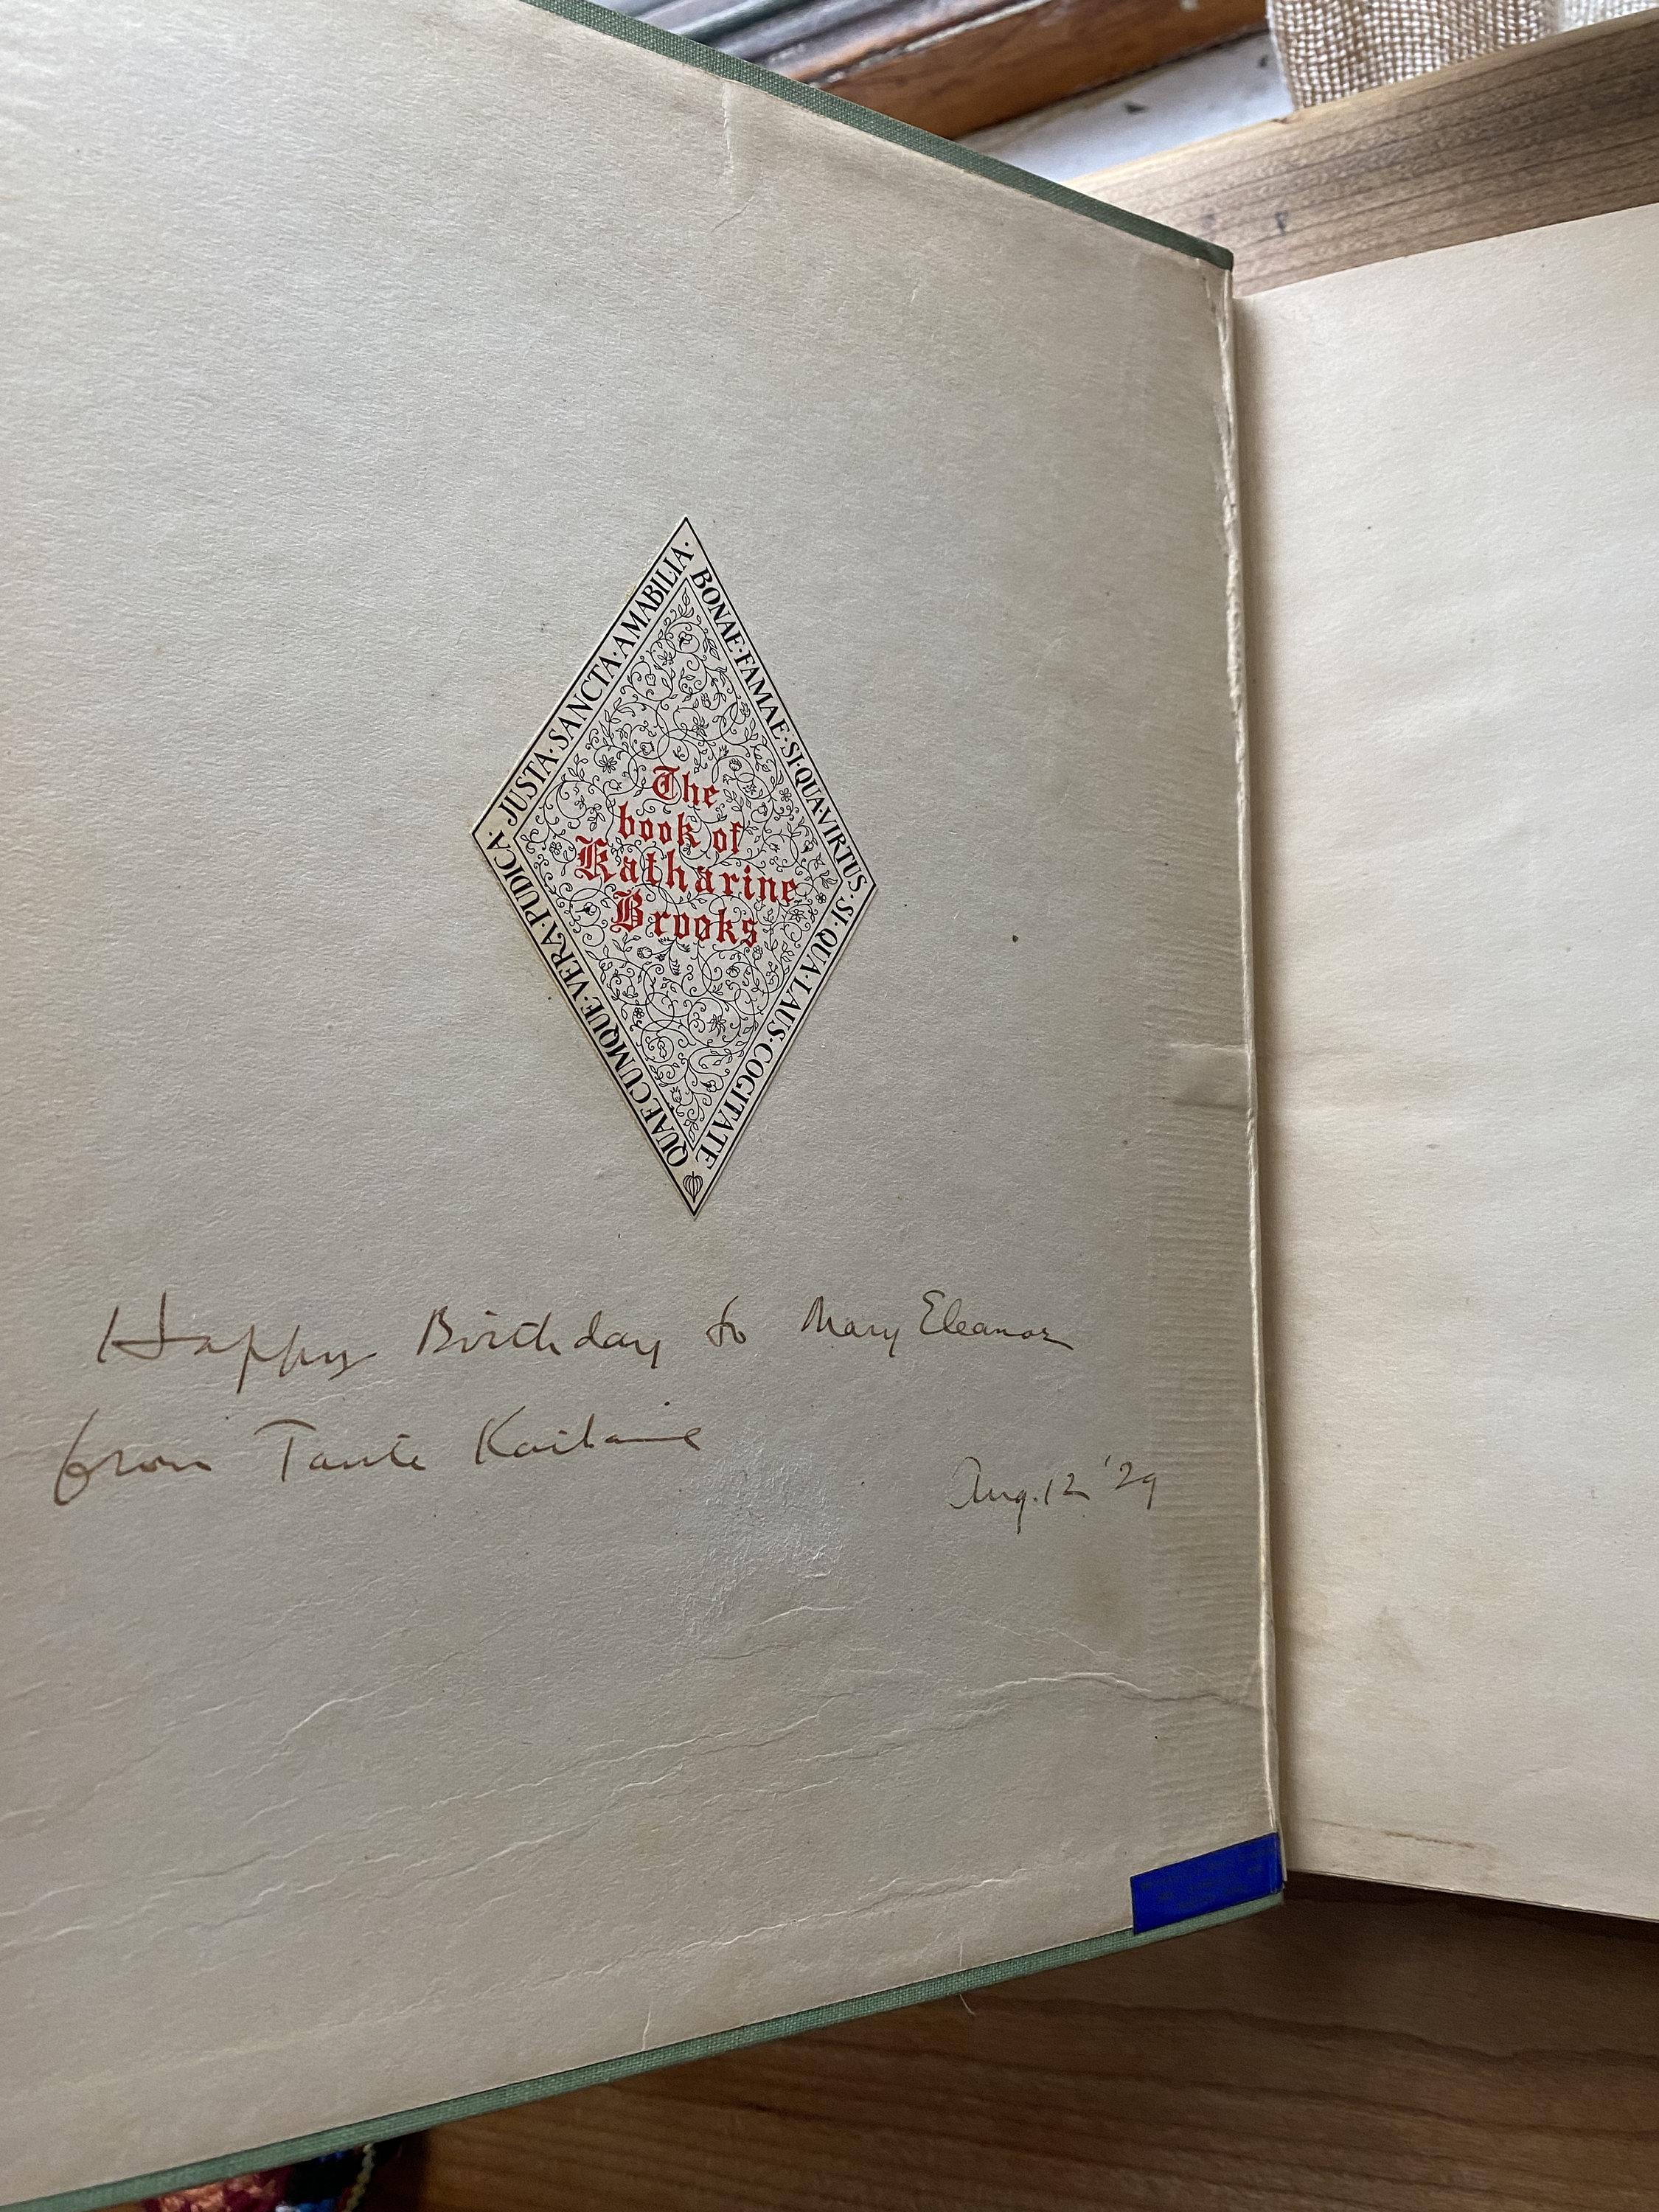 QUAECUMQUE·VERA·PUDICA·
JUSTA·SANCTA·AMABILIA·
BONAE·FAMAE·SI·QUA·VIRTUS·
SI·QUA·LAUS·COGITATE
The
book of
Katharine
Brooks
Happy Birthday to Mary Eleanor
from Tante
Aug. 12 '29